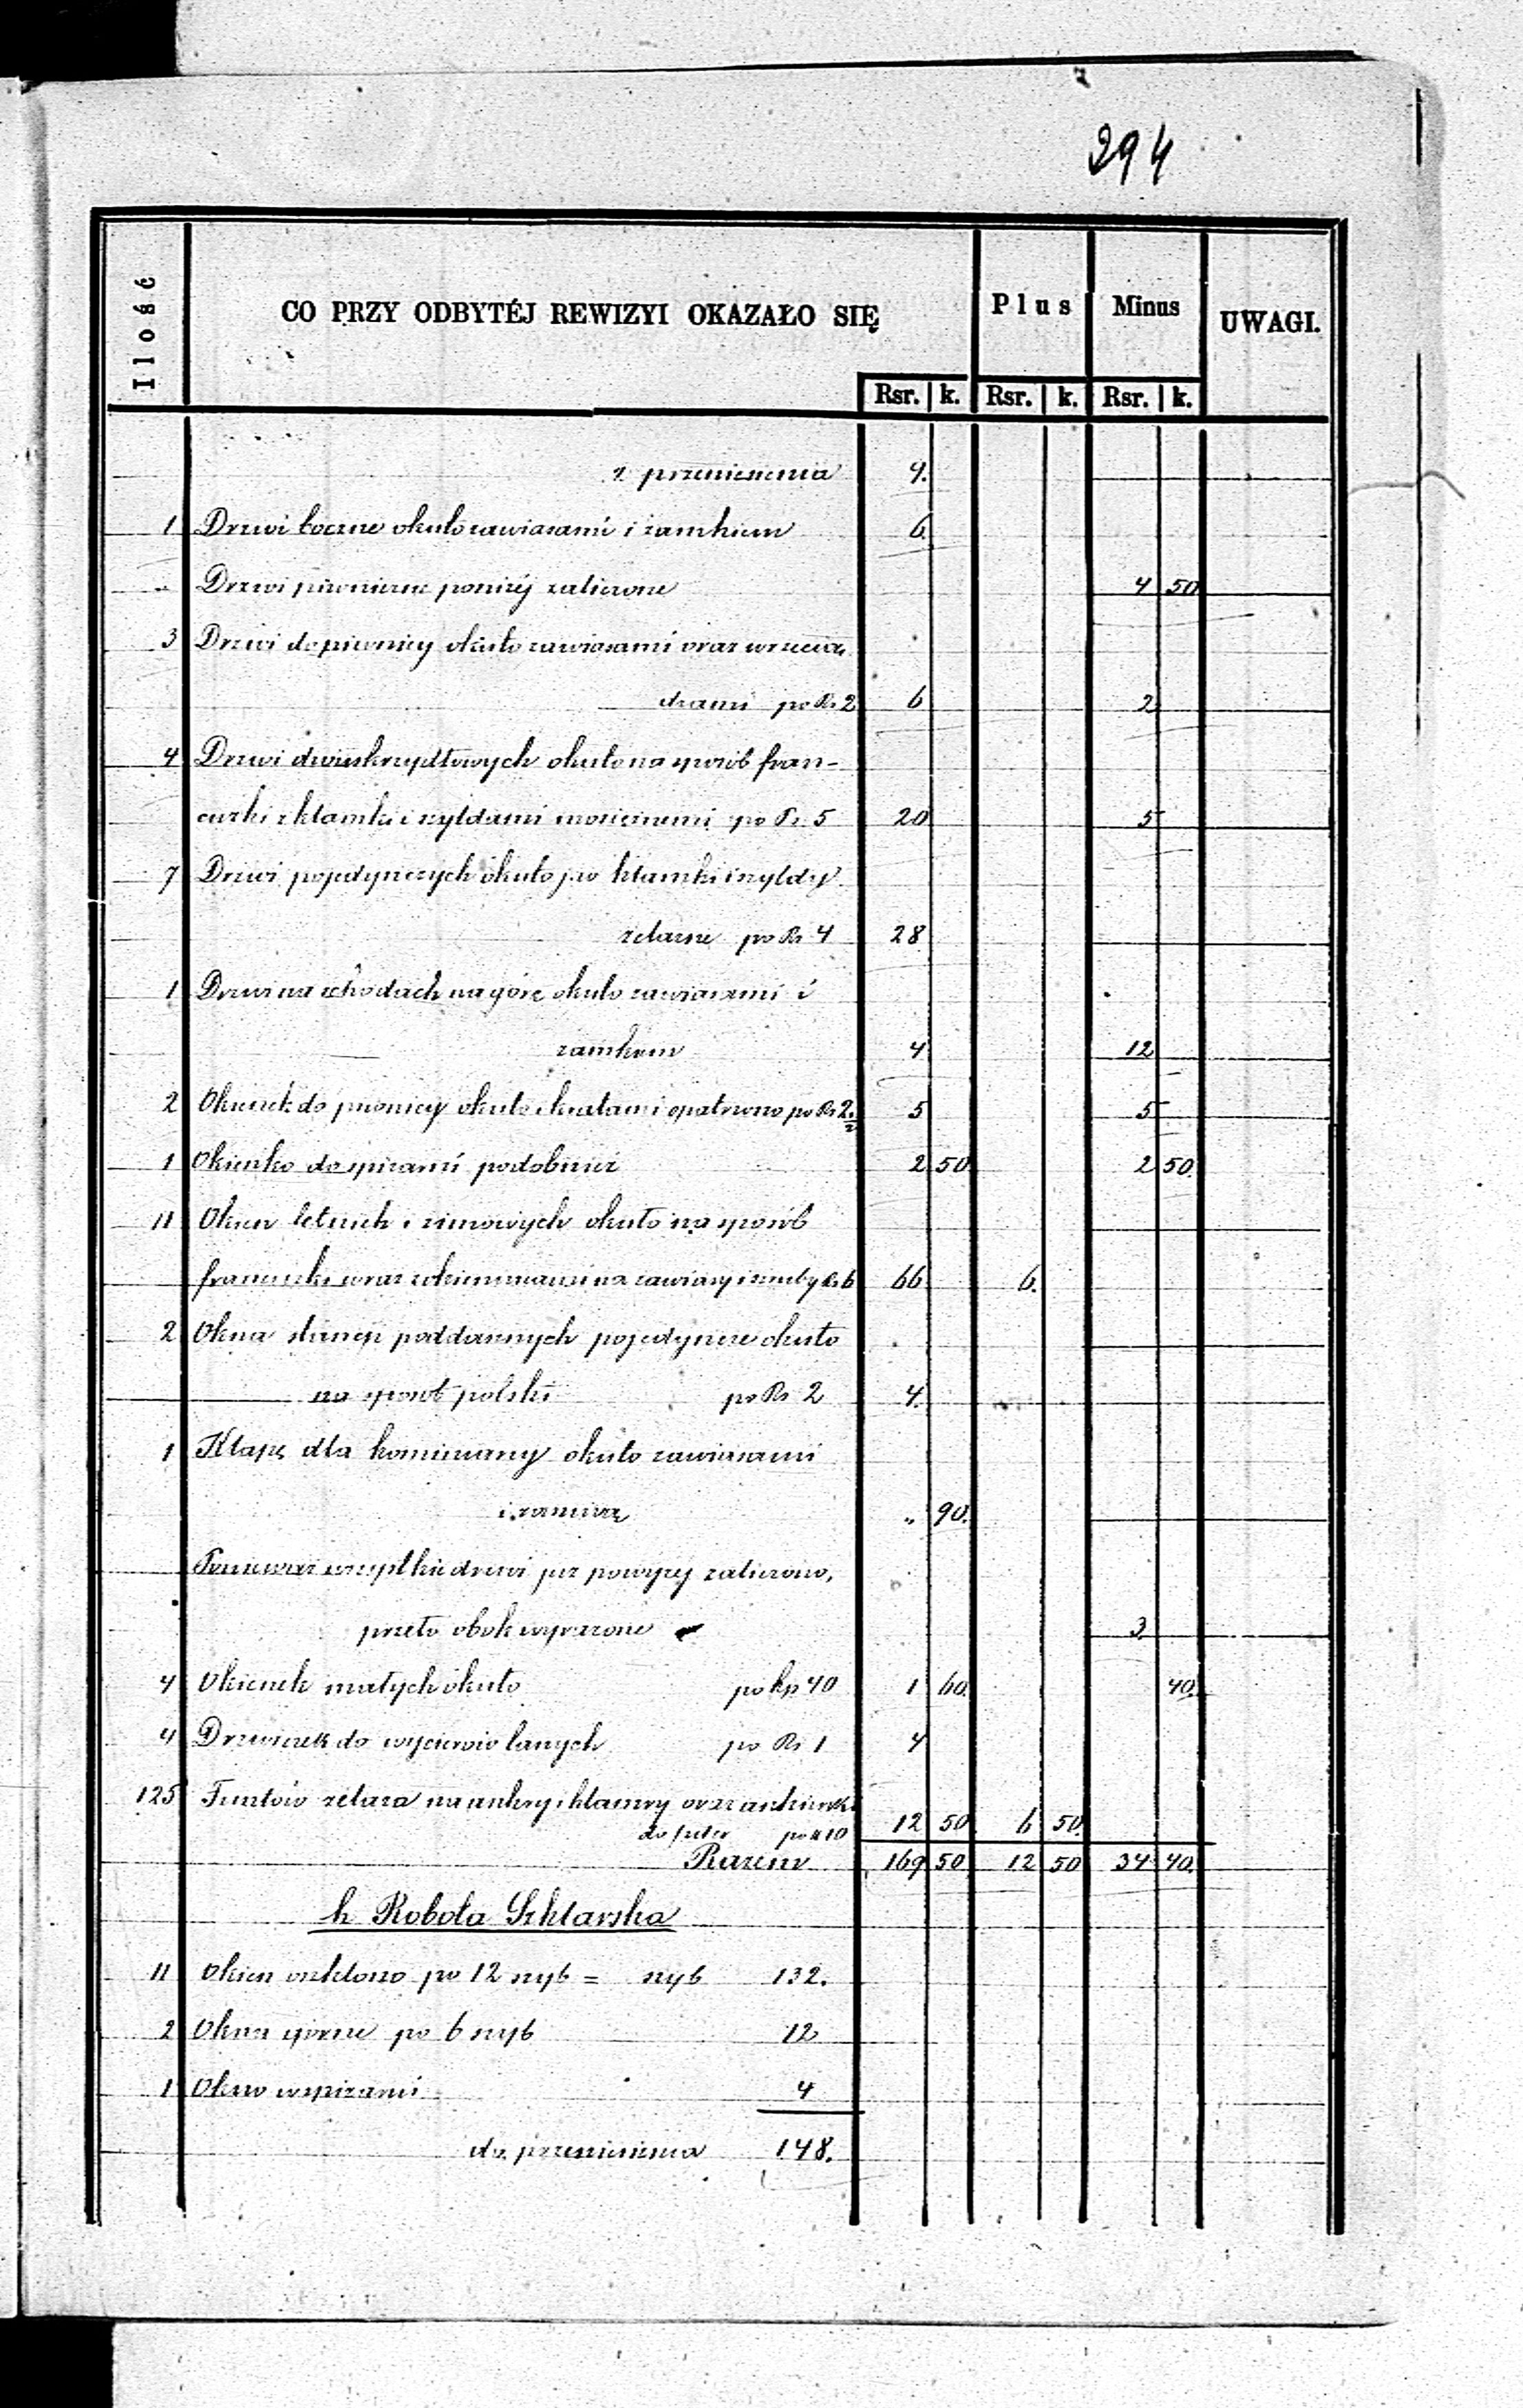 294
Ilość CO PRZY ODBYTÉJ REWIZYI OKAZAŁO SIĘ Plus Minus UWAGI.
Rsr. k. Rsr. k. Rsr. k.
z przeniesienia 9.
1 Drzwi boczne okuto zawiasami i zamkiem 6.
" Drzwi piwniczne poniżéj zaliczone 4 50
3 Drzwi do piwnicy okuto zawiasami oraz wrzecią-
dzami po Rs 2 6 2
4 Drzwi dwuskrzydłowych okuto na sposób fran-
cuzki z klamki i szyldami mosiężnemi po Rs. 5 20 5
7 Drzwi pojedynczych okuto po klamki i szyldy
żelazne po Rs 4 28
1 Drzwi na schodach na górę okuto zawiasami i
zamkiem 4 12
2 Okienek do piwnicy okuto i kratami opatrzono po Rs 2. 5 5
1 Okienko do spiżarni podobnież 2 50 2 50
11 Okien letnich i zimowych okuto na sposób
francuzki wraz z okiennicami na zawiasy i szruby Rs 6 66 6.
2 Okna stancji poddasznych pojedyncze okuto
na sposób polski po Rs 2 4.
1 Klapę dla kominiarzy okuto zawiasami
i zasuwą " 90.
Ponieważ wszystkie drzwi już powyżéj zaliczono,
przeto obok wyrażone 3
4 Okienek małych okuto po kp 40 1 60. 40.
4 Drzwiczek do wycierów lanych po Rs 1 4
125 Funtów żelaza na ankry i klamry oraz ankierki
do futer po k 10 12 50 6 50.
Razem 169 50 12 50 34 40.
h Robota Szklarska
11 Okien oszklono po 12 szyb = szyb 132.
2 Okna górne po 6 szyb 12
1 Okno w spiżarni 4
do przeniesienia 148.